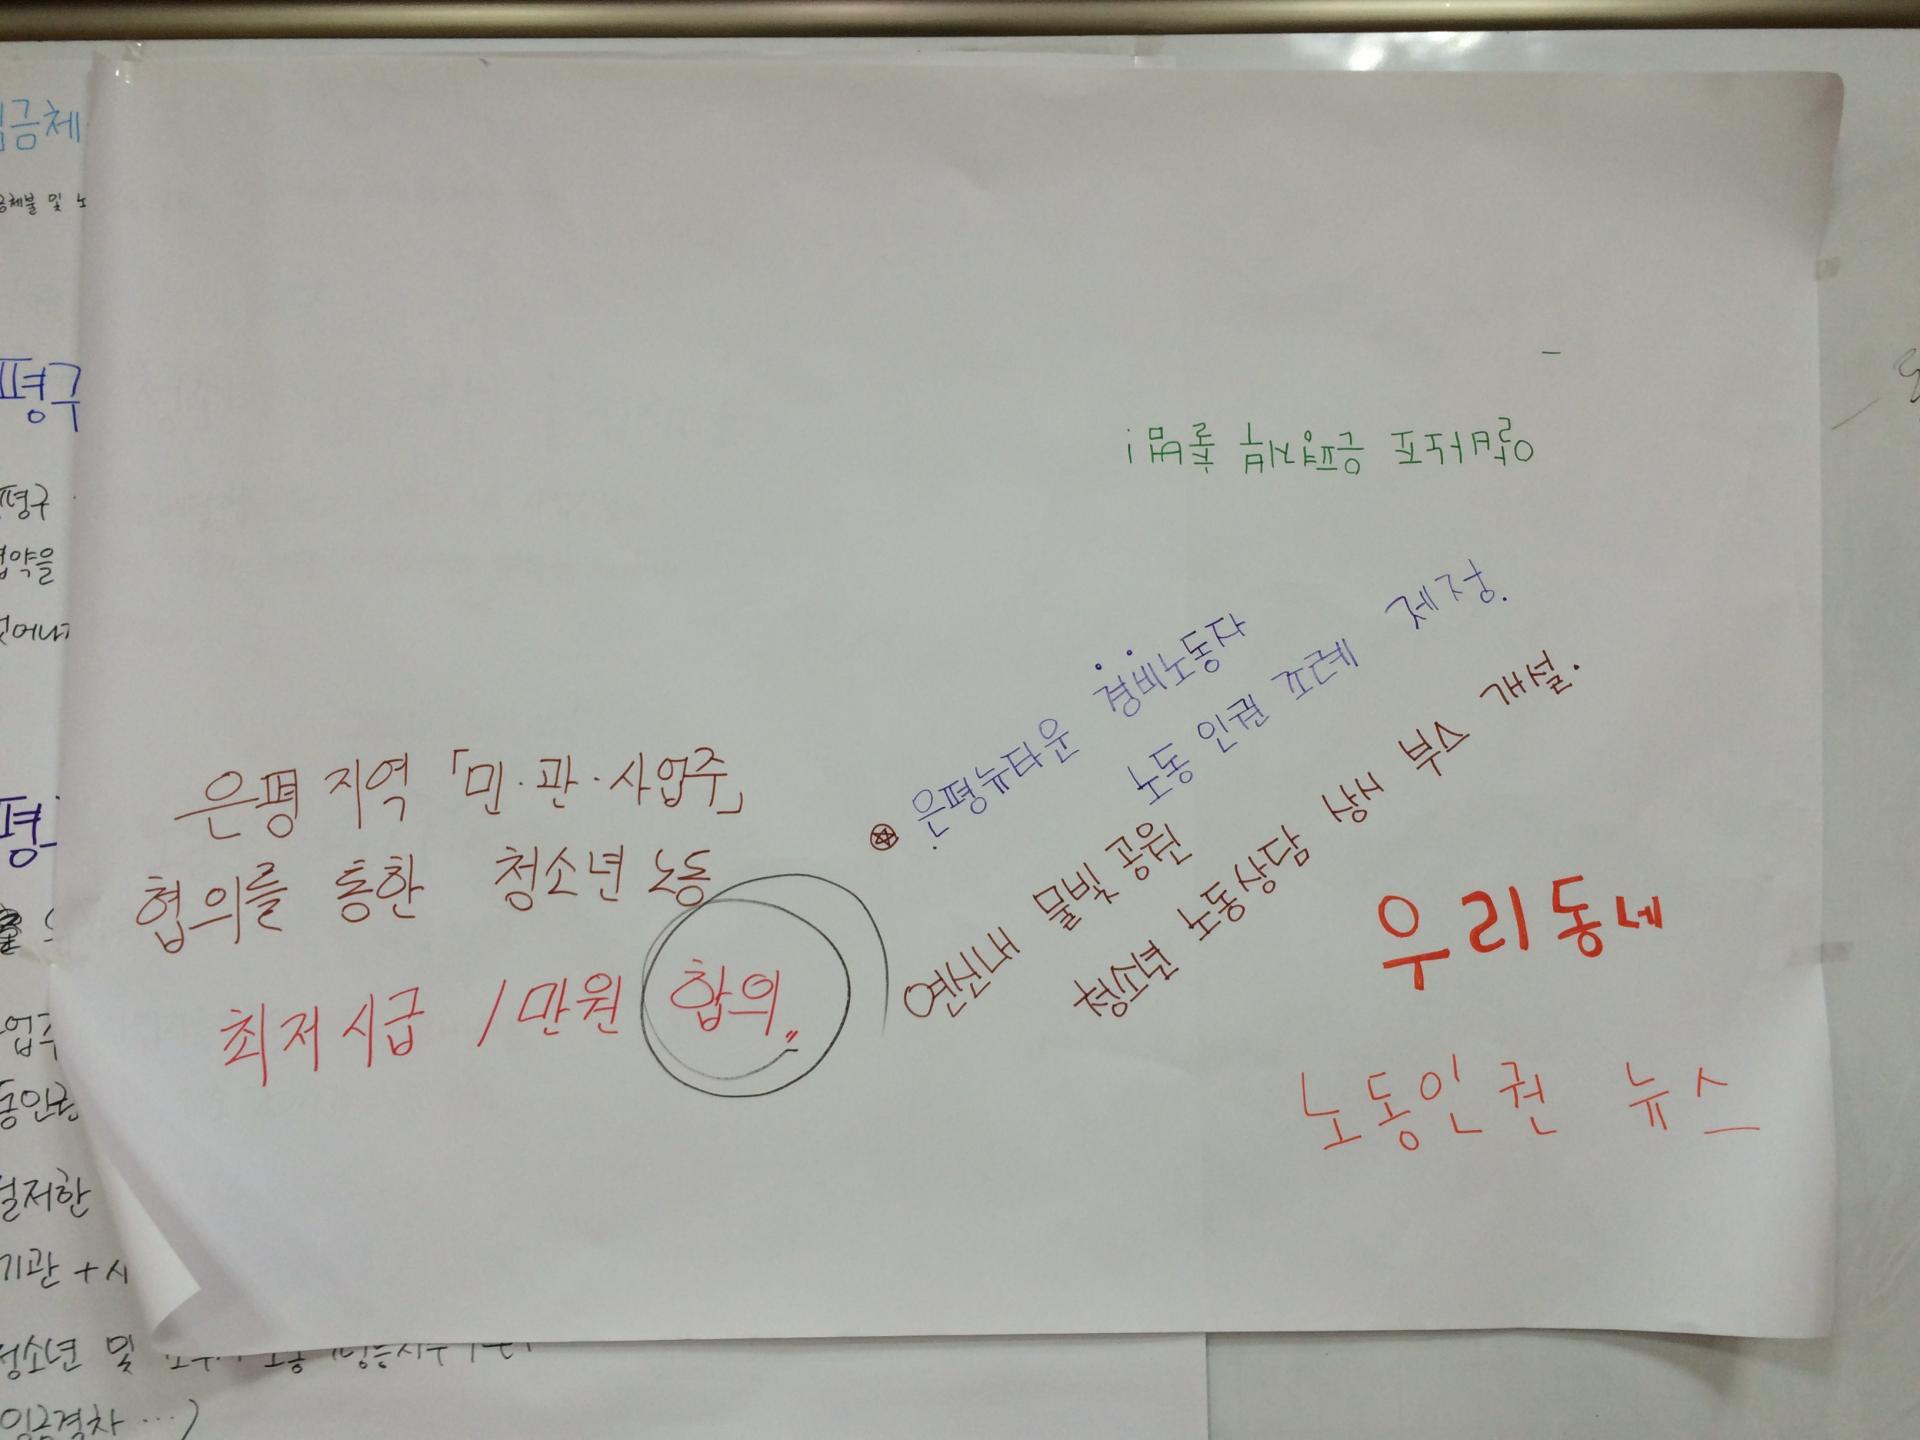 금체
금체불 및 노
평구
평구
약을
은평뉴타운 경비노동자
노동 인권 조례 제정.
연신내 물빛 공원
청소년 노동상담 상시 부스 개설.
은평 지역 「민·관·사업주」
협의를 통한 청소년 노동
최저시급 1만원 합의〃
우리동네
노동인권 뉴스
업주
동인권
절저한
기관 + 시
청소년 및
임금격차 …)